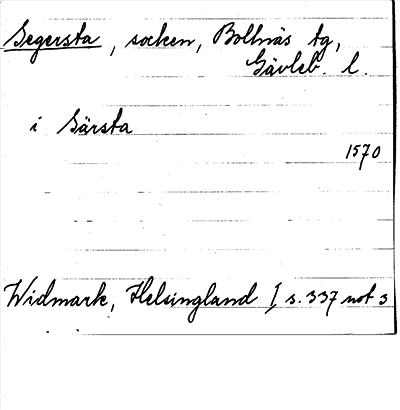 Segersta, socken, Bollnäs tg,
Gävleb. l.
i Särsta
1570
Widmark, Helsingland I s. 337 not 3